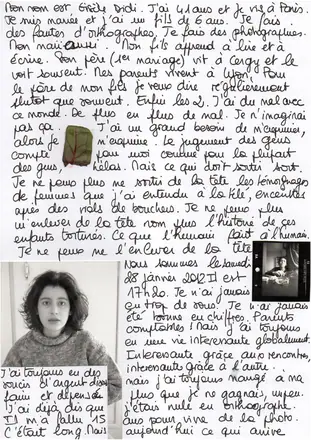 Mon nom est Estelle Didi. J'ai 41 ans et je vis à Paris.
Je suis mariée et j'ai un fils de 6 ans. Je fais
des fautes d'orthographes. Je fais des photographies.
Mon mari aussi. Mon fils apprend à lire et à
écrire. Son père (1er mariage) vit à Cergy et le
voit souvent. Mes parents vivent à Lyon. Pour
le père de mon fils je veux dire régulièrement
plutôt que souvent. Enfin les 2. J'ai du mal avec
ce monde. De plus en plus de mal. Je n'imaginais
pas ça. J'ai un grand besoin de m'exprimer,
alors je m'exprime. Le jugement des gens
compte pour moi comme pour la plupart
des gens, hélas. Mais ce qui doit sortir sort.
Je ne peux plus me sortir de la tête les témoignages
de femmes que j'ai entendu à la télé, enceintes
après des viols de bouchers. Je ne peux plus
m'enlever de la tête non plus l'histoire de ces
enfants torturés. Ce que l'humain fait à l'humain.
Je ne peux me l'enlever de la tête
Nous sommes le samedi
28 janvier 2012 Il est
17h20. Je n'ai jamais
eu trop de sous. Je n'ai jamais
été bonne en chiffres. Parents
comptables ! Mais j'ai toujours
eu une vie intéressante globalement.
Intéressante grâce aux rencontres,
intéressante grâce à l'autre.
J'ai toujours eu des
soucis d'argent
mais j'ai toujours mangé à ma
faim et dépensé
plus que je ne gagnais,
J'ai déjà dis que
j'étais nulle en orthographe.
Il m'a fallu 15
ans pour vivre de la photo.
C'était long. Mais
aujourd'hui ce qui arrive